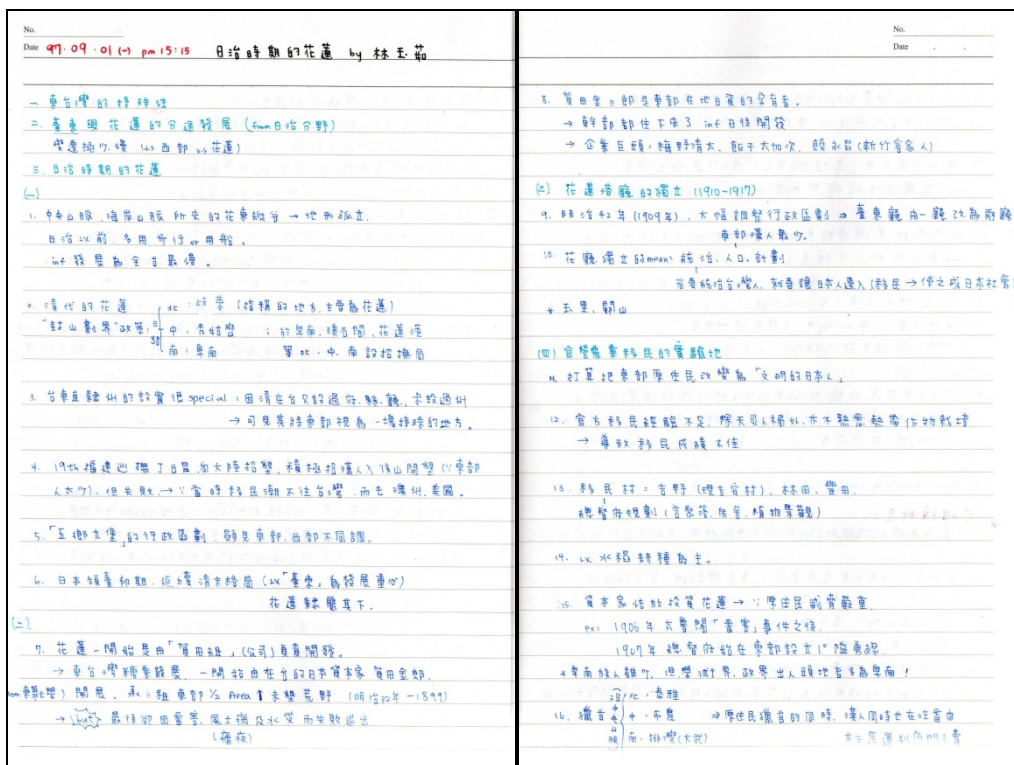 No.
Date 97.09.01 (一) pm 15:15 日治時期的花蓮 by 林玉茹
一 東台灣的特殊性
二. 臺東與花蓮的分途發展 (from日治分野)
變遷極ㄅ慢 (vs 西部 vs 花蓮)
三. 日治時期的花蓮
(一)
1. 中央山脈、海岸山脈 所夾的花東縱谷 → 地形孤立.
日治以前, 多用步行or用船。
inf 發展為全台最慢。
2. 清代的花蓮
"封山劃界"政策:
北: 岐萊 (指稱的地方主要為花蓮)
中: 秀姑巒 ; 於卑南、璞石閣、花蓮港
南: 卑南 等北、中、南設招撫局
3. 台東直隸州的設置很special: 因清在台只設過府、縣、廳, 未設過州
→ 可見其將東部視為一塊特殊的地方。
4. 19th 福建巡撫丁日昌, 向大陸招墾, 積極招漢人入後山開墾 (∵東部
人太少), 但失敗 → ∵當時移民潮不往台灣, 而去澳洲、美國。
5.「五鄉六堡」的行政區劃: 顯見東部、西部不同調。
6. 日本領臺初期, 延續清末格局 (以「臺東」為發展重心)
花蓮隸屬其下.
(二).
7. 花蓮一開始是由「賀田組」(公司)負責開發。
→ 東台灣糖業發展, 一開始由在台的日本資本家 賀田金三郎
開展, 承租東部 1/2 Area 未墾荒野 (明治32年-1899)
→ but 最後卻因番害、風土病及水災而失敗退出.
No.
Date . .
8. 賀田金三郎是東部在地日資的孕育者。
→ 幹部都住下來了 inf 日後開發
→ 企業巨頭: 梅野清太、飯干太加次、饒永昌(新竹客家人)
(三) 花蓮港廳的獨立 (1910-1917)
9. 明治42年 (1909年), 大幅調整行政區劃 ⇒ 臺東廳由一廳改為兩廳
東部漢人最少.
10. 花廳獨立的mean: 統治、人口、計劃
若要統治台灣人, 就要讓日本人遷入 (移民 → 使之成日本社會
* 玉里、關山
(四) 官營農業移民的實驗地
11. 打算把東部原住民改變為「文明的日本人」
12. 官方移民經驗不足, 除天災人禍外, 亦不熟悉熱帶作物栽培
→ 導致移民成績不佳
13. 移民村: 吉野 (現吉安村)、林田、豐田.
總督府規劃 (含聚落、房舍、植物景觀)
14. 以水稻耕種為主。
15. 資本家怯於投資花蓮 → ∵原住民威脅嚴重.
ex: 1906年太魯閣「番害」事件之後.
1907年總督府始在東部設立1°隘勇線.
* 卑南族人雖少, 但學術界、政界出人頭地者多為卑南!
16. 獵首
北: 泰雅
中: 布農 ⇒ 原住民獵首的同時, 漢人同時也在吃番肉
南: 排灣(大武)